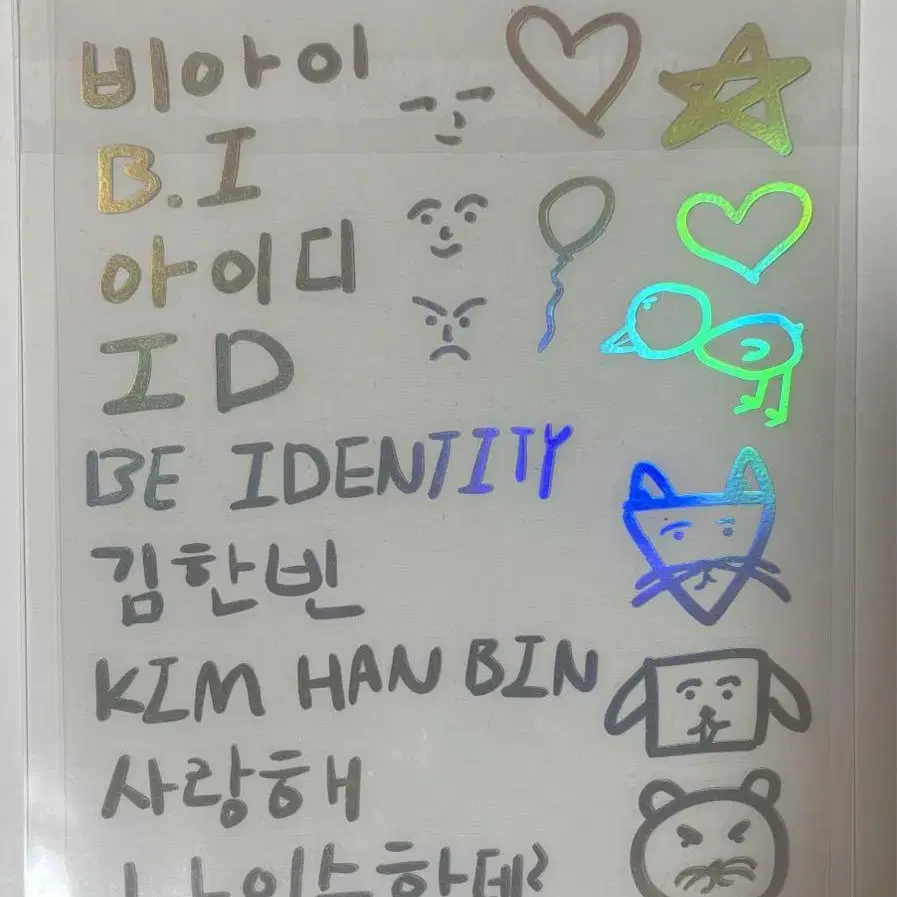 비아이
B.I
아이디
ID
BE IDENTITY
김한빈
KIM HAN BIN
사랑해